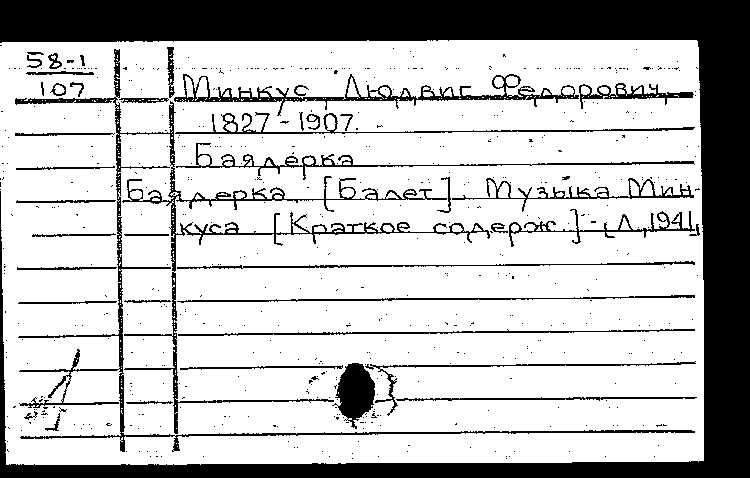 58-1
107
Минкус, Людвиг Федорович,
1827-1907.
Баядерка
Баядерка. [Балет]. Музыка Мин-
куса. [Краткое содерж.] - [Л., 1941,